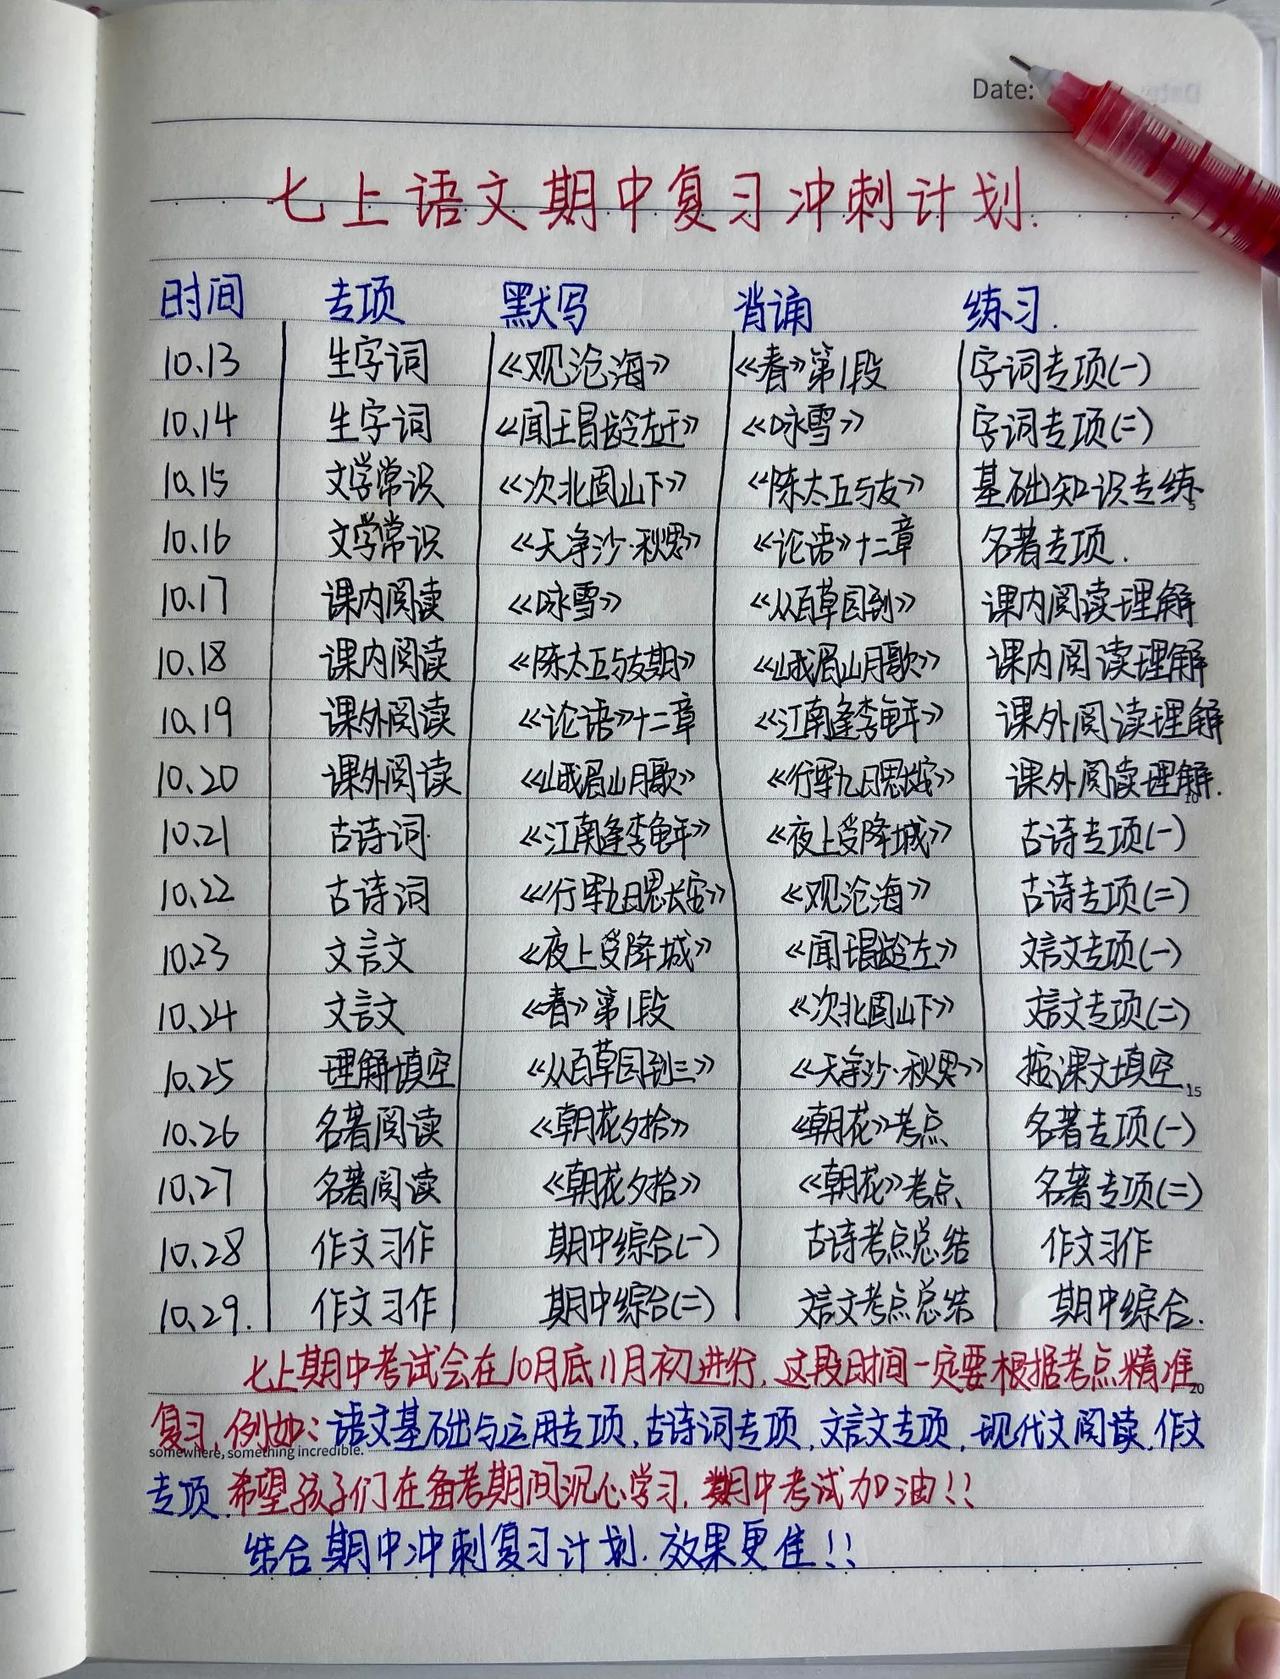 Date:
七上语文期中复习冲刺计划.
时间 专项 默写 背诵 练习.
10.13 生字词 《观沧海》 《春》第1段 字词专项(一)
10.14 生字词 《闻王昌龄左迁》 《咏雪》 字词专项(二)
10.15 文学常识 《次北固山下》 《陈太丘与友》 基础知识专练
5
10.16 文学常识 《天净沙·秋思》 《论语》十二章 名著专项.
10.17 课内阅读 《咏雪》 《从百草园到》 课内阅读理解
10.18 课内阅读 《陈太丘与友期》 《峨眉山月歌》 课内阅读理解
10.19 课外阅读 《论语》十二章 《江南逢李龟年》 课外阅读理解
10.20 课外阅读 《峨眉山月歌》 《行军九日思长安》 课外阅读理解.
10
10.21 古诗词 《江南逢李龟年》 《夜上受降城》 古诗专项(一)
10.22 古诗词 《行军九日思长安》 《观沧海》 古诗专项(二)
10.23 文言文 《夜上受降城》 《闻王昌龄左》 文言文专项(一)
10.24 文言文 《春》第1段 《次北固山下》 文言文专项(二)
10.25 理解填空 《从百草园到三》 《天净沙·秋思》 按课文填空
15
10.26 名著阅读 《朝花夕拾》 《朝花》考点 名著专项(一)
10.27 名著阅读 《朝花夕拾》 《朝花》考点 名著专项(二)
10.28 作文习作 期中综合(一) 古诗考点总结 作文习作
10.29. 作文习作 期中综合(二) 文言文考点总结 期中综合.
七上期中考试会在10月底11月初进行,这段时间一定要根据考点精准
20
复习,例如:语文基础与运用专项,古诗词专项,文言文专项,现代文阅读,作文
somewhere, something incredible.
专项.希望孩子们在备考期间沉心学习,期中考试加油!!
结合期中冲刺复习计划.效果更佳!!